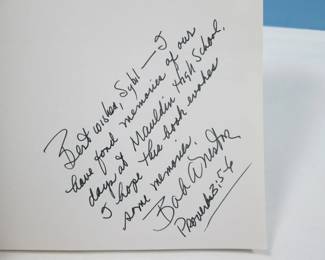 Best wishes, Sybil — I
have fond memories of our
days at Mauldin High School.
I hope this book evokes
some memories.
Bob
Proverbs 3:5-6